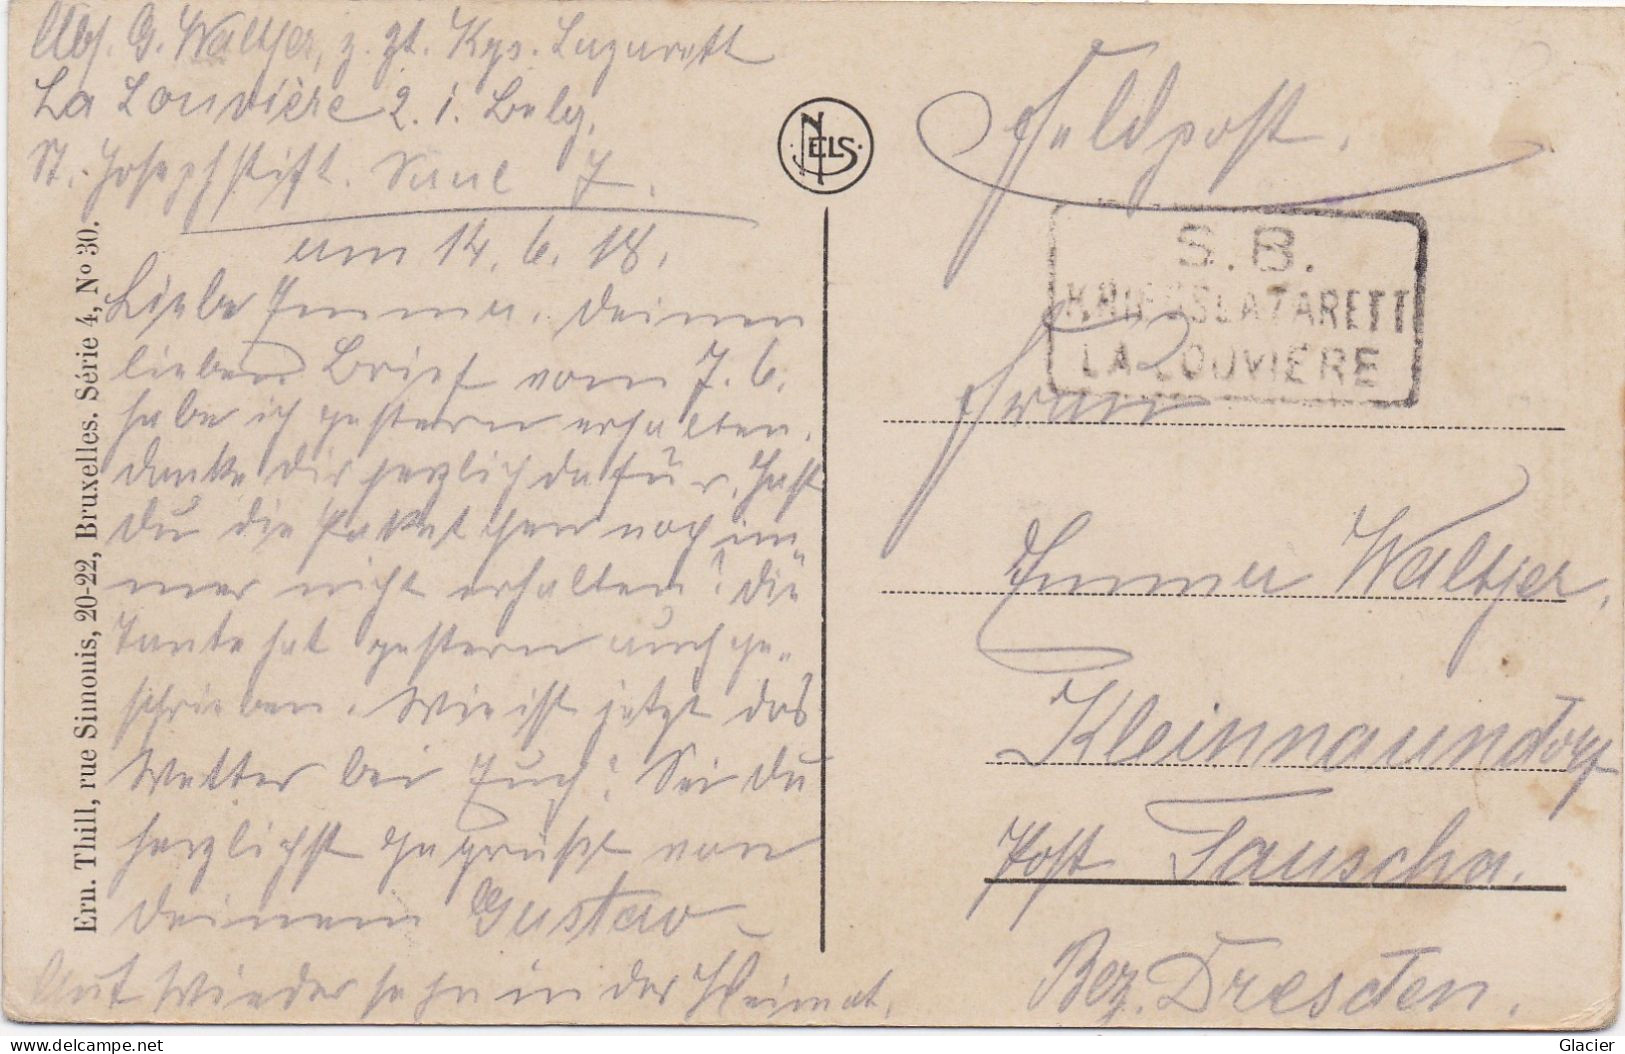 Abs. G. Waltjer, z. Zt. Kgs. Lazarett
La Louvière 2. i. Belg.
St. Josephstift. Saal 7.
am 14. 6. 18.
Liebe Emma. Deinen
lieben Brief vom 7. 6.
habe ich gestern erhalten.
Danke dir herzlich dafür. Hast
Du die Paketchen noch im-
mer nicht erhalten? Die
Tante hat gestern auch ge-
schrieben. Wie ist jetzt das
Wetter bei Euch? Sei Du
herzlichst gegrüßt von
Deinem Gustav
Auf Wiedersehn in der Heimat.
Ern. Thill, rue Simonis, 20-22, Bruxelles. Série 4, No 30.
NELS
Feldpost.
S. B.
KRIEGSLAZARETT
LA LOUVIERE
Frau
Emma Waltjer,
Kleinnaundorf
Post Tauscha.
Bez. Dresden.
www.delcampe.net
Glacier